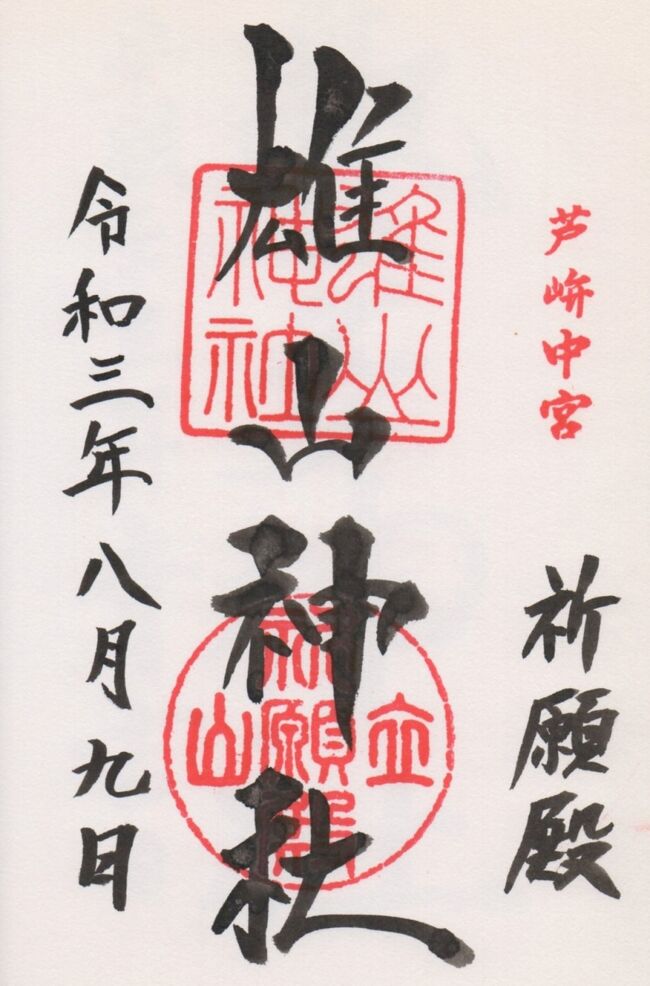 芦峅中宮
祈願殿
雄山神社
雄山
神社
立山
祈願殿
令和三年八月九日